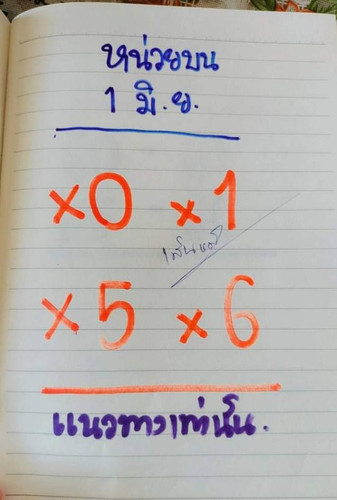 หน่วยบน
1 มิ.ย.
×0 ×1
×5 ×6
แนวทางเท่านั้น.